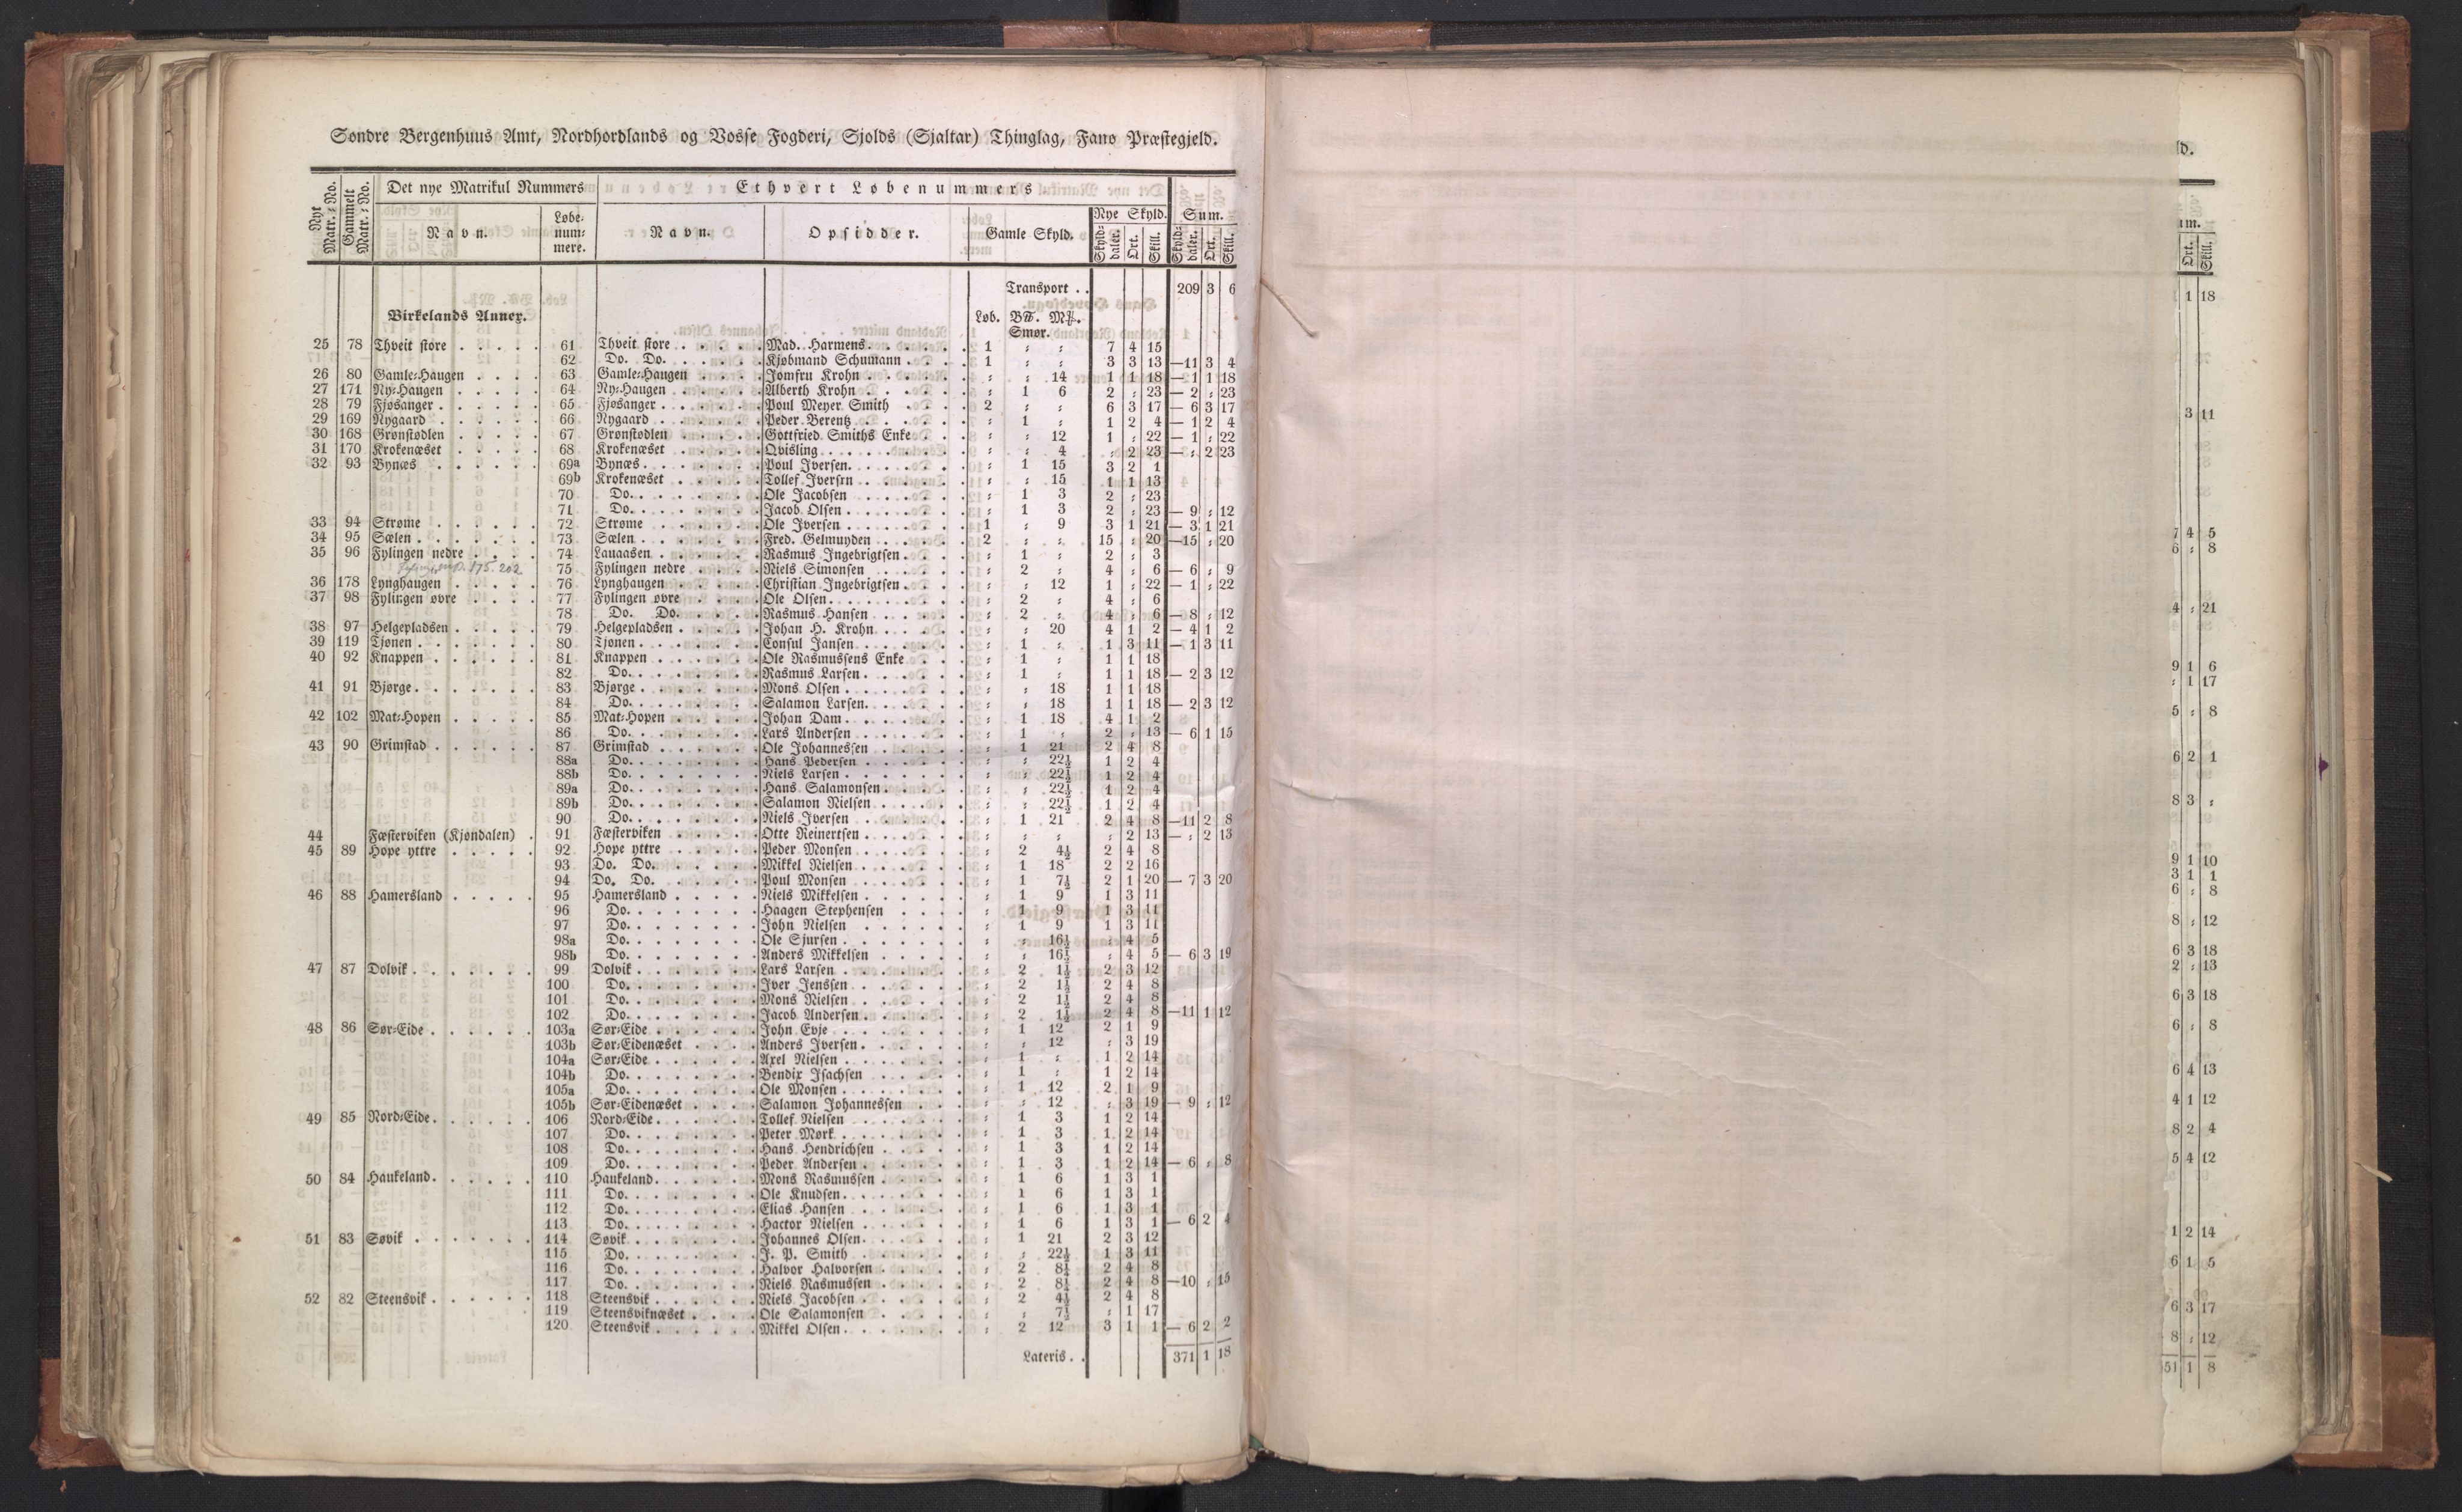 Søndre Bergenhuus Amt, Nordhordlands og Vosse Fogderi, Sjolds (Sjaltar) Thinglag, Fano Præstegjeld.
Nye Matr.-No. Gammelt Matr.-No. Det nye Matrikul Nummers Ethvert Løbenummers
Navn. Løbe-nummere. Navn. Opsidder. Gamle Skyld. Nye Skyld. Sum.
Skylddaler. Ort. Skill. Skylddaler. Ort. Skill.
Transport . . 209 3 6
Birkelands Annex. Løb. B℔. M℔.
Smør.
25 78 Thveit store 61 Thveit store Mad. Harmens 1 : : 7 4 15
62 Do. Do. Kjøbmand Schumann 1 : : 3 3 13 — 11 3 4
26 80 Gamle-Haugen 63 Gamle-Hangen Jomfru Krohn : : 14 1 1 18 — 1 1 18
27 171 Ny-Haugen 64 Ny-Haugen Alberth Krohn : 1 6 2 : 23 — 2 : 23
28 79 Fjøsanger 65 Fjøsanger Poul Meyer Smith 2 : : 6 3 17 — 6 3 17
29 169 Nygaard 66 Nygaard Peder Berentz : 1 : 1 2 4 — 1 2 4
30 168 Grønstødlen 67 Grønstødlen Gottfried Smiths Enke : : 12 1 : 22 — 1 : 22
31 170 Krokenæset 68 Krokenæset Qvisling : : 4 : 2 23 — : 2 23
32 93 Bynæs 69a Bynæs Poul Iversen : 1 15 3 2 1
69b Krokenæset Tollef Iversrn : : 15 1 1 13
70 Do. Ole Jacobsen : 1 3 2 : 23
71 Do. Jacob Olsen : 1 3 2 : 23 — 9 : 12
33 94 Strøme 72 Strøme Ole Iversen 1 : 9 3 1 21 — 3 1 21
34 95 Sælen 73 Sælen Fred. Gelmuyden 2 : : 15 : 20 — 15 : 20
35 96 Fylingen nedre 74 Lauaasen Rasmus Ingebrigtsen : 1 : 2 : 3
175. 202 75 Fylingen nedre Niels Simonsen : 2 : 4 : 6 — 6 : 9
36 178 Lynghaugen 76 Lynghaugen Christian Ingebrigtsen : : 12 1 : 22 — 1 : 22
37 98 Fylingen øvre 77 Fylingen øvre Ole Olsen : 2 : 4 : 6
78 Do. Do. Rasmus Hansen : 2 : 4 : 6 — 8 : 12
38 97 Helgepladsen 79 Helgepladsen Johan H. Krohn : : 20 4 1 2 — 4 1 2
39 119 Tjønen 80 Tjønen Consul Jansen : 1 : 1 3 11 — 1 3 11
40 92 Knappen 81 Knappen Ole Rasmussens Enke : 1 : 1 1 18
82 Do. Rasmus Larsen : 1 : 1 1 18 — 2 3 12
41 91 Bjørge 83 Bjørge Mons Olsen : : 18 1 1 18
84 Do. Salamon Larsen : : 18 1 1 18 — 2 3 12
42 102 Mat-Hopen 85 Mat-Hopen Johan Dam : 1 18 4 1 2
86 Do. Lars Andersen : 1 : 2 : 13 — 6 1 15
43 90 Grimstad 87 Grimstad Ole Johannessen : 1 21 2 4 8
88a Do. Hans Pedersen : : 22½ 1 2 4
88b Do. Niels Larsen : : 22½ 1 2 4
89a Do. Hans Salamonsen : : 22½ 1 2 4
89b Do. Salamon Nielsen : : 22½ 1 2 4
90 Do. Niels Iversen : 1 21 2 4 8 — 11 2 8
44 Fæsterviken (Kjøndalen) 91 Fæsterviken Otte Reinertsen : : : : 2 13 — : 2 13
45 89 Hope yttre 92 Hope yttre Peder Monsen : 2 4½ 2 4 8
93 Do. Do. Mikkel Nielsen : 1 18 2 2 16
94 Do. Do. Poul Monsen : 1 7½ 2 1 20 — 7 3 20
46 88 Hamersland 95 Hamersland Niels Mikkelsen : 1 9 1 3 11
96 Do. Haagen Stephensen : 1 9 1 3 11
97 Do. John Nielsen : 1 9 1 3 11
98a Do. Ole Sjursen : : 16½ : 4 5
98b Do. Anders Mikkelsen : : 16½ : 4 5 — 6 3 19
47 87 Dolvik 99 Dolvik Lars Larsen : 2 1½ 2 3 12
100 Do. Iver Jenssen : 2 1½ 2 4 8
101 Do. Mons Nielsen : 2 1½ 2 4 8
102 Do. Jacob Andersen : 2 1½ 2 4 8 — 11 1 12
48 86 Sør-Eide 103a Sør-Eide John Evje : 1 12 2 1 9
103b Sør-Eidenæset Anders Iversen : : 12 : 3 19
104a Sør-Eide Axel Nielsen : 1 : 1 2 14
104b Do. Bendix Isachsen : 1 : 1 2 14
105a Do. Ole Monsen : 1 12 2 1 9
105b Sør-Eidenæset Salamon Johannessen : : 12 : 3 19 — 9 : 12
49 85 Nord-Eide 106 Nord-Eide Tollef Nielsen : 1 3 1 2 14
107 Do. Peter Mørk : 1 3 1 2 14
108 Do. Hans Hendrichsen : 1 3 1 2 14
109 Do. Peder Andersen : 1 3 1 2 14 — 6 : 8
50 84 Haukeland 110 Haukeland Mons Rasmussen : 1 6 1 3 1
111 Do. Ole Knudsen : 1 6 1 3 1
112 Do. Elias Hansen : 1 6 1 3 1
113 Do. Hactor Nielsen : 1 6 1 3 1 — 6 2 4
51 83 Søvik 114 Søvik Johannes Olsen : 1 21 2 3 12
115 Do. J. P. Smith : : 22½ 1 3 11
116 Do. Halvor Halvorsen : 2 8¼ 2 4 8
117 Do. Niels Rasmussen : 2 8¼ 2 4 8 — 10 : 15
52 82 Steensvik 118 Steensvik Niels Jacobsen : 2 4½ 2 4 8
119 Steensviknæset Ole Salamonsen : : 7½ : 1 17
120 Steensvik Mikkel Olsen : 2 12 3 1 1 — 6 2 2
Lateris . . 371 1 18
ld.
um.
Ort. Skill.
1 18
3 11
7 4 5
6 : 8
4 : 21
9 1 6
: 1 17
5 : 8
6 2 1
8 3 :
9 1 10
3 1 1
6 : 8
8 : 12
6 3 18
2 : 13
6 3 18
6 : 8
6 4 13
4 1 12
8 2 4
5 4 12
1 2 14
6 1 5
6 3 17
8 : 12
51 1 8